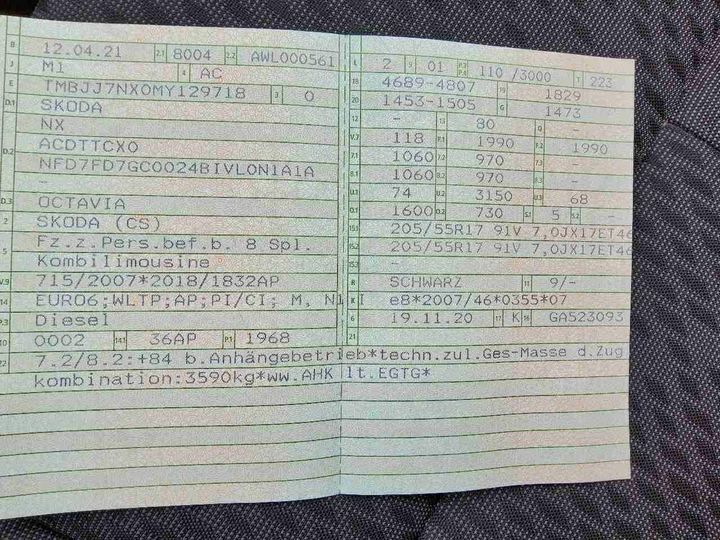 B 12.04.21 2.1 8004 2.2 AWL000561
J M1 4 AC
E TMBJJ7NX0MY129718 3 0
D.1 SKODA
NX
D.2 ACDTTCX0
NFD7FD7GC0024BIVLON1A1A
-
D.3 OCTAVIA
2 SKODA (CS)
5 Fz.z.Pers.bef.b. 8 Spl.
Kombilimousine
V.9 715/2007*2018/1832AP
14 EURO6;WLTP;AP;PI/CI; M, N1 I
P.3 Diesel
10 0002 14.1 36AP P.1 1968
22 7.2/8.2:+84 b.Anhängebetrieb*techn.zul.Ges-Masse d.Zug
kombination:3590kg*ww.AHK lt.EGTG*
L 2 9 01 P.2 P.4 110 /3000 T 223
18 4689-4807 19 1829
20 1453-1505 G 1473
12 - 13 80 Q -
V.7 118 F.1 1990 F.2 1990
7.1 1060 7.2 970 7.3 -
8.1 1060 8.2 970 8.3 -
U.1 74 U.2 3150 U.3 68
O.1 1600 O.2 730 S.1 5 S.2 -
15.1 205/55R17 91V 7,0JX17ET46
15.2 205/55R17 91V 7,0JX17ET46
15.3 -
R SCHWARZ 11 9/-
K e8*2007/46*0355*07
6 19.11.20 17 K 16 GA523093
21